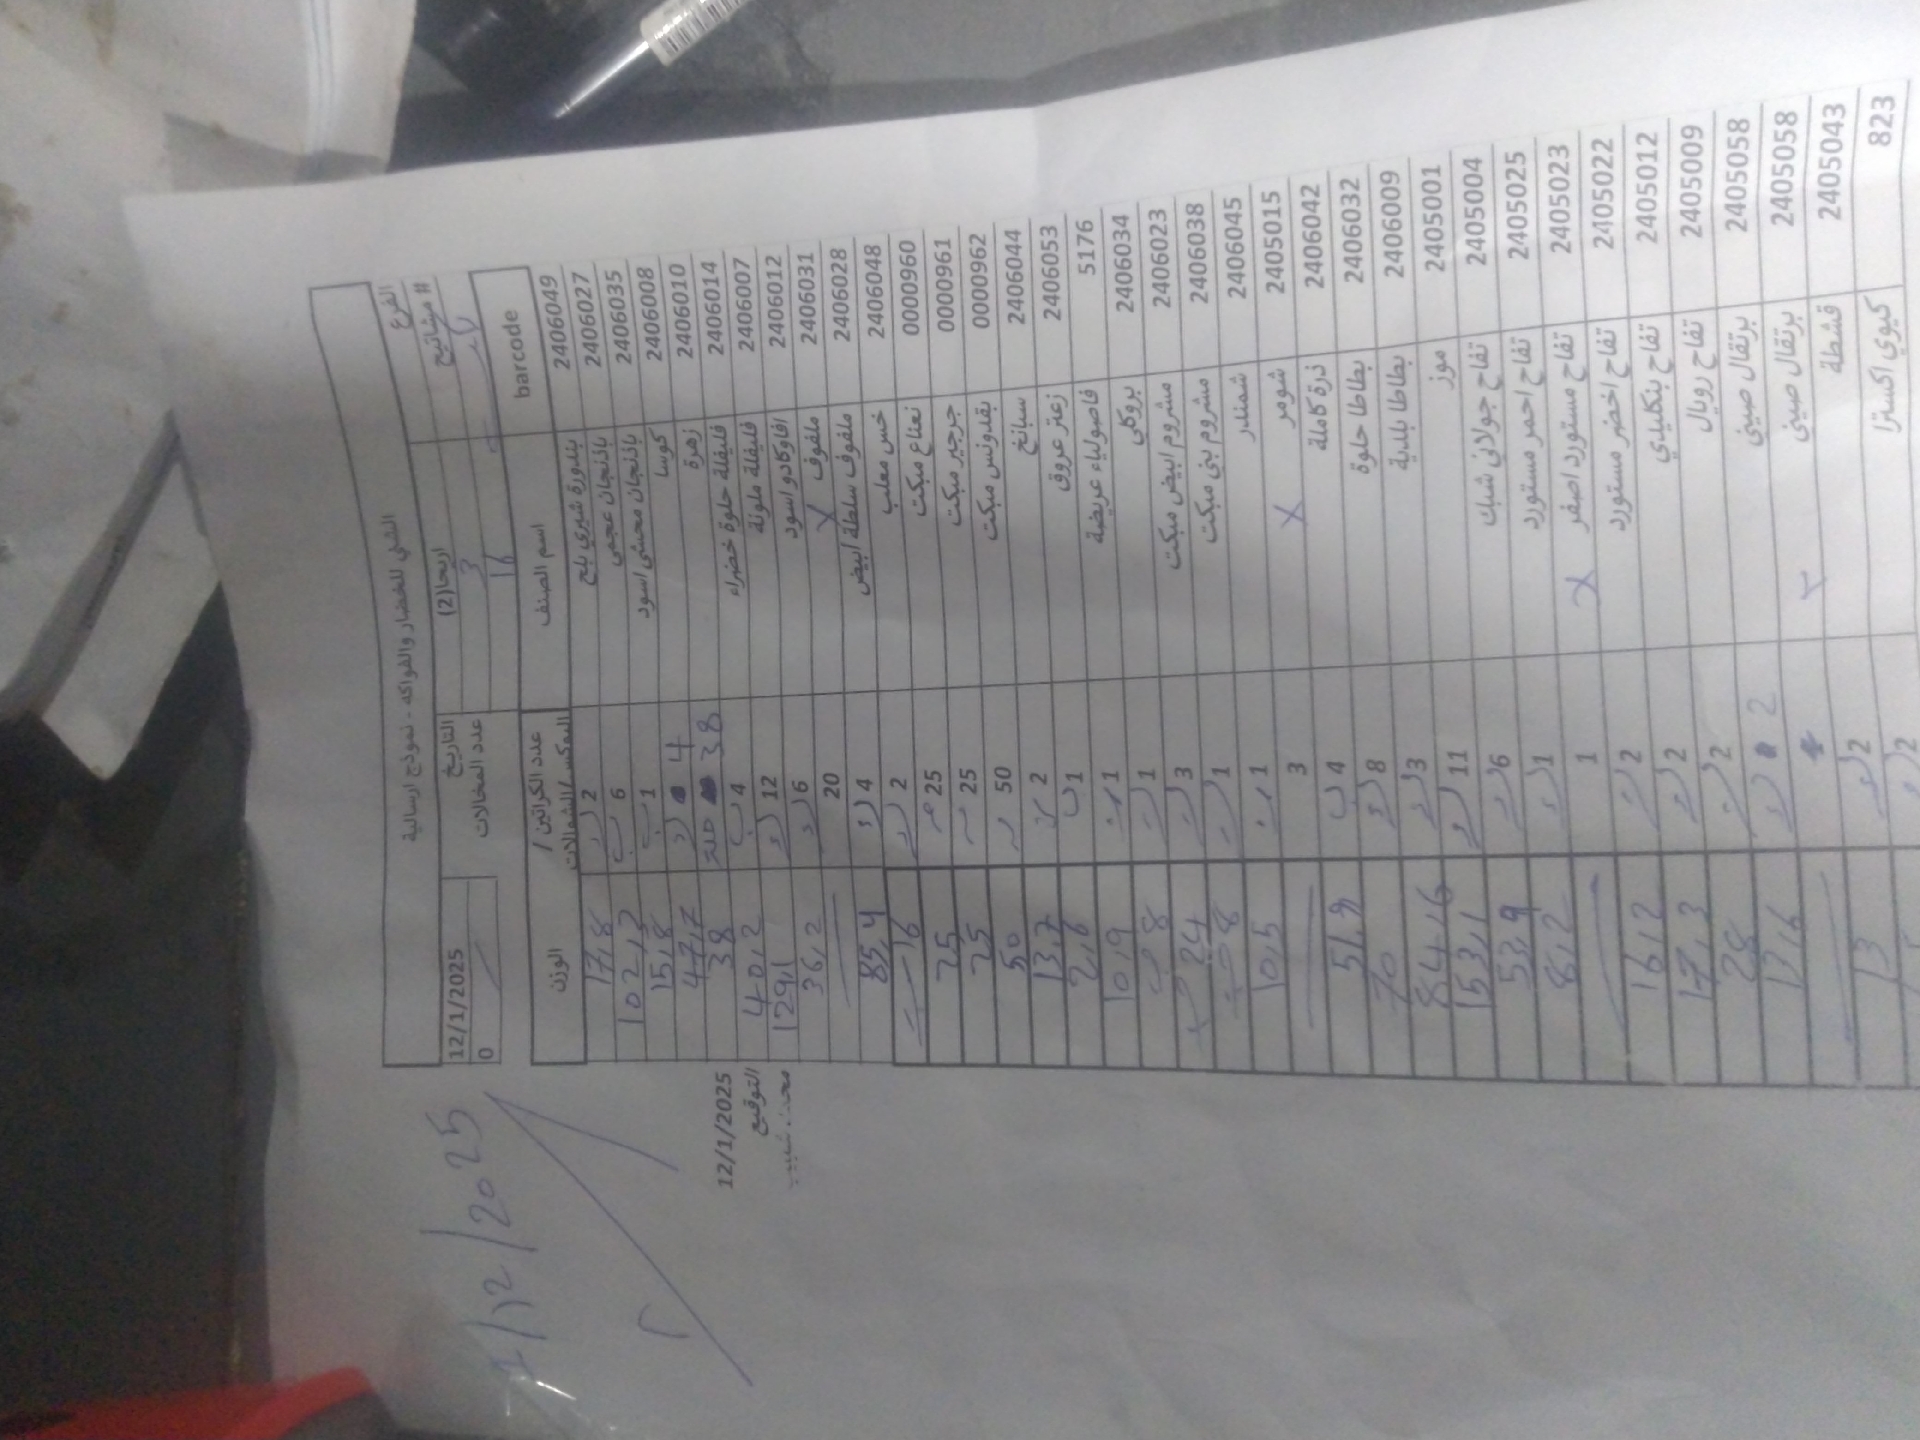 الشني للخضار والفواكه - نموذج ارسالية
الفرع اريحا(2) التاريخ 12/1/2025
# مشاتيح 3 عدد المخالات 0
16
barcode اسم الصنف عدد الكراتين / البكس/الشوالات الوزن
2406049 بندورة شيري بلح 2 17,8
2406027 باذنجان عجمي 6 102,3
2406035 باذنجان محشي اسود 1 15,8
2406008 كوسا 4 47,7
2406010 زهرة 38 38
2406014 فليفلة حلوة خضراء 4 40,2
2406007 فليفلة ملونة 12 129,1
2406012 افاوكادو اسود 6 36,2
2406031 ملفوف X 20
2406028 ملفوف سلطة ابيض 4 85,4
2406048 خس معلب 2 16
00000960 نعناع مبكت 25 25
00000961 جرجير مبكت 25 25
00000962 بقدونس مبكت 50 50
2406044 سبانخ 2 13,7
2406053 زعتر عروق 1 2,6
5176 فاصولياء عريضة 1 10,9
2406034 بروكلي 1 8
2406023 مشروم ابيض مبكت 3 24
2406038 مشروم بني مبكت 1 8
2406045 شمندر 1 10,5
2405015 شومر X 3
2406042 ذرة كاملة 4 51,9
2406032 بطاطا حلوة 8 70
2406009 بطاطا بلدية 3 84,6
2405001 موز 11 153,1
2405004 تفاح جولاني شبك 6 53,9
2405025 تفاح احمر مستورد 1 8,2
2405023 تفاح مستورد اصفر X 1
2405022 تفاح اخضر مستورد 2 16,2
2405012 تفاح بنكليدي 2 17,3
2405009 تفاح رويال 2 28
2405058 برتقال صيني 2 17,6
2405058 برتقال صيني
2405043 قشطة 2 13
823 كيوي اكسترا 2
12/1/2025
التوقيع
1/12/2025